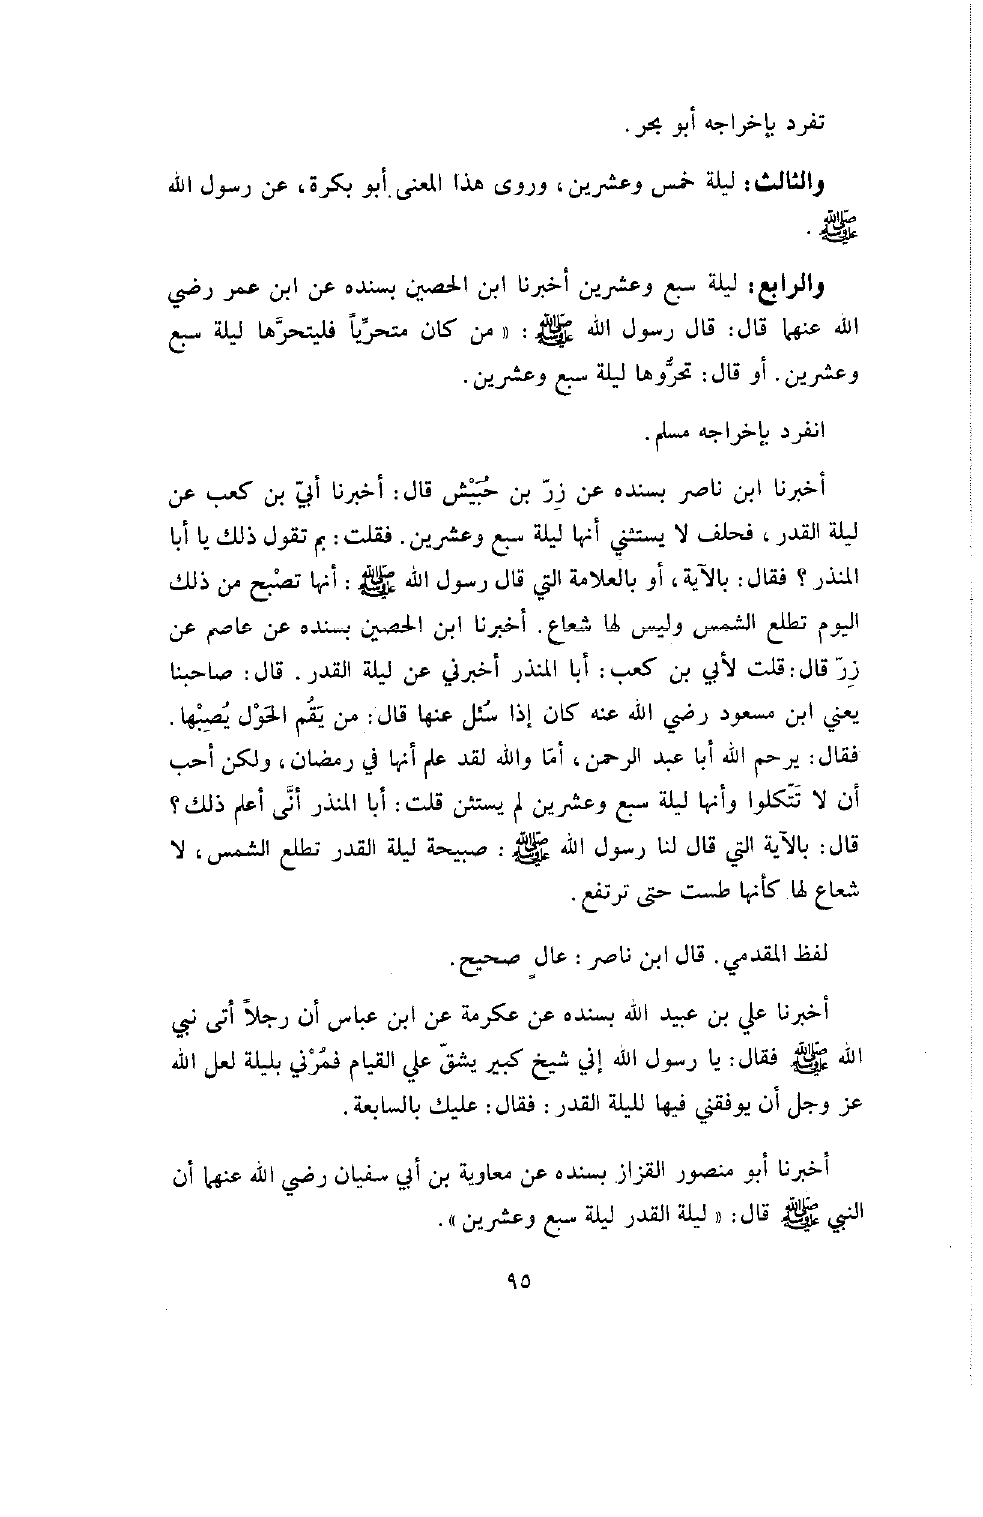 تفرد بإخراجه أبو بحر .
والثالث: ليلة خمس وعشرين، وروى هذا المعنى أبو بكرة، عن رسول الله
ﷺ .
والرابع: ليلة سبع وعشرين أخبرنا ابن الحصين بسنده عن ابن عمر رضي
الله عنهما قال: قال رسول الله ﷺ : « من كان متحرِّياً فليتحرَّها ليلة سبع
وعشرين. أو قال: تحرُّوها ليلة سبع وعشرين.
انفرد بإخراجه مسلم.
أخبرنا ابن ناصر بسنده عن زِرّ بن حُبَيْش قال: أخبرنا أبيّ بن كعب عن
ليلة القدر ، فحلف لا يستثني أنها ليلة سبع وعشرين. فقلت: بم تقول ذلك يا أبا
المنذر ؟ فقال: بالآية، أو بالعلامة التي قال رسول الله ﷺ : أنها تصْبح من ذلك
اليوم تطلع الشمس وليس لها شعاع. أخبرنا ابن الحصين بسنده عن عاصم عن
زِرّ قال: قلت لأبي بن كعب: أبا المنذر أخبرني عن ليلة القدر. قال: صاحبنا
يعني ابن مسعود رضي الله عنه كان إذا سُئل عنها قال: من يَقُم الحَوْل يُصِبْها.
فقال: يرحم الله أبا عبد الرحمن، أمَا والله لقد علم أنها في رمضان، ولكن أحب
أن لا تَتَّكلوا وأنها ليلة سبع وعشرين لم يستثن قلت: أبا المنذر أنَّى أعلم ذلك؟
قال: بالآية التي قال لنا رسول الله ﷺ : صبيحة ليلة القدر تطلع الشمس، لا
شعاع لها كأنها طست حتى ترتفع.
لفظ المقدمي. قال ابن ناصر: عالٍ صحيح.
أخبرنا علي بن عبيد الله بسنده عن عكرمة عن ابن عباس أن رجلاً أتى نبي
الله ﷺ فقال: يا رسول الله إني شيخ كبير يشقّ علي القيام فمُرْني بليلة لعل الله
عز وجل أن يوفقني فيها لليلة القدر : فقال: عليك بالسابعة.
أخبرنا أبو منصور القزاز بسنده عن معاوية بن أبي سفيان رضي الله عنهما أن
النبي ﷺ قال: « ليلة القدر ليلة سبع وعشرين ».
٩٥